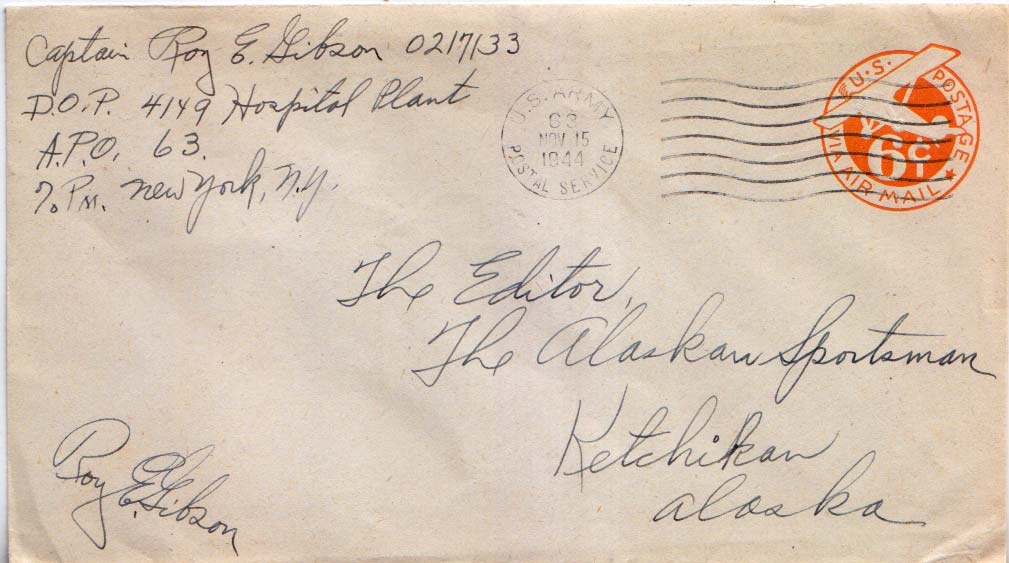 Captain Roy E. Gibson 0217133
D.O.P. 4149 Hospital Plant
A.P.O. 63.
℅ P.M. New York, N.Y.
U.S. ARMY
63
NOV 15
1944
POSTAL SERVICE
U.S. POSTAGE
6¢
VIA AIR MAIL
The Editor,
The Alaskan Sportsman
Ketchikan
Alaska
Roy E. Gibson